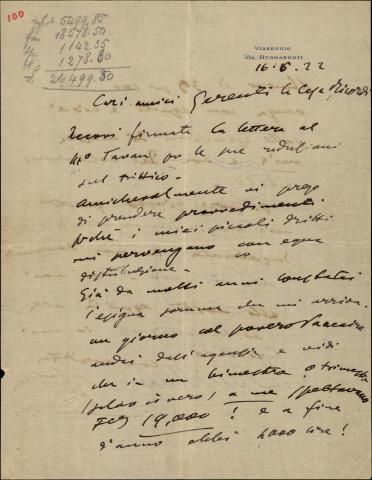 100
5499.85
18578.50
1142.35
1278.80
26499.50
VIAREGGIO
VIA BUONARROTI
16.5.22
Cari amici Gerenti la Casa Ricordi
Eccovi firmata la lettera al
Mo Tavan per le sue riduzioni
sul trittico.
Amichevolmente vi prego
di prendere provvedimenti
perchè i miei piccoli diritti
mi pervengano con equa
distribuzione.
Già da molti anni constatai
l'esigua somma che mi arriva.
un giorno col povero
andai dall'agenzia e vidi
che in un bimestre o trimestre
(salvo il vero) a me spettavano
19,000! e a fine
d'anno ebbi 4000 lire!